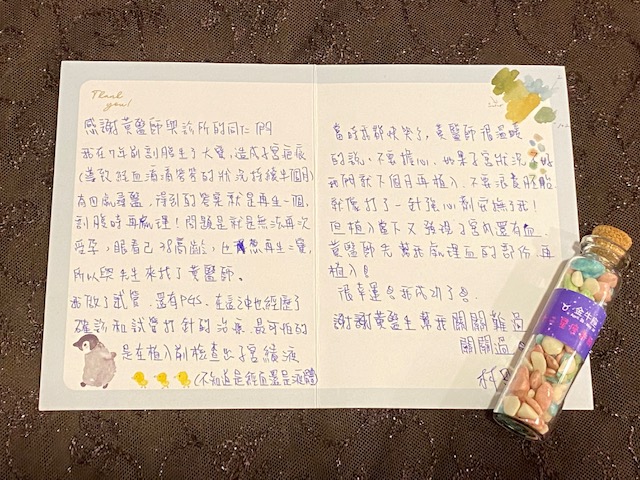 Thank you!
感謝黃醫師與診所的同仁們
我在7年前剖腹生了大寶,造成子宮疤痕
(導致經血滴滴答答的狀況持續半個月)
有四處尋醫,得到的答案就是再生一個,
剖腹時再處理!問題是就是無法再次
受孕,眼看已
高齡,也
想再生二寶,
所以與先生來找了黃醫師。
我做了試管,還有PGS,在這
也經歷了
確診和試管打針的
,最可怕的
是在植入前檢查出子宮積液
(不知道是經血還是液體)
當時我都快哭了,黃醫師很溫暖
的說:不要擔心,如果子宮狀況
好
我們就下個月再植入,不要浪費胚胎
就像打了一針強心劑安撫了我!
但植入當下又發現了宮內還有血,
黃醫師先幫我處理血的部份,再
植入!
很幸運我成功了
謝謝黃醫生幫我關關難過
關關過。
林
金牛